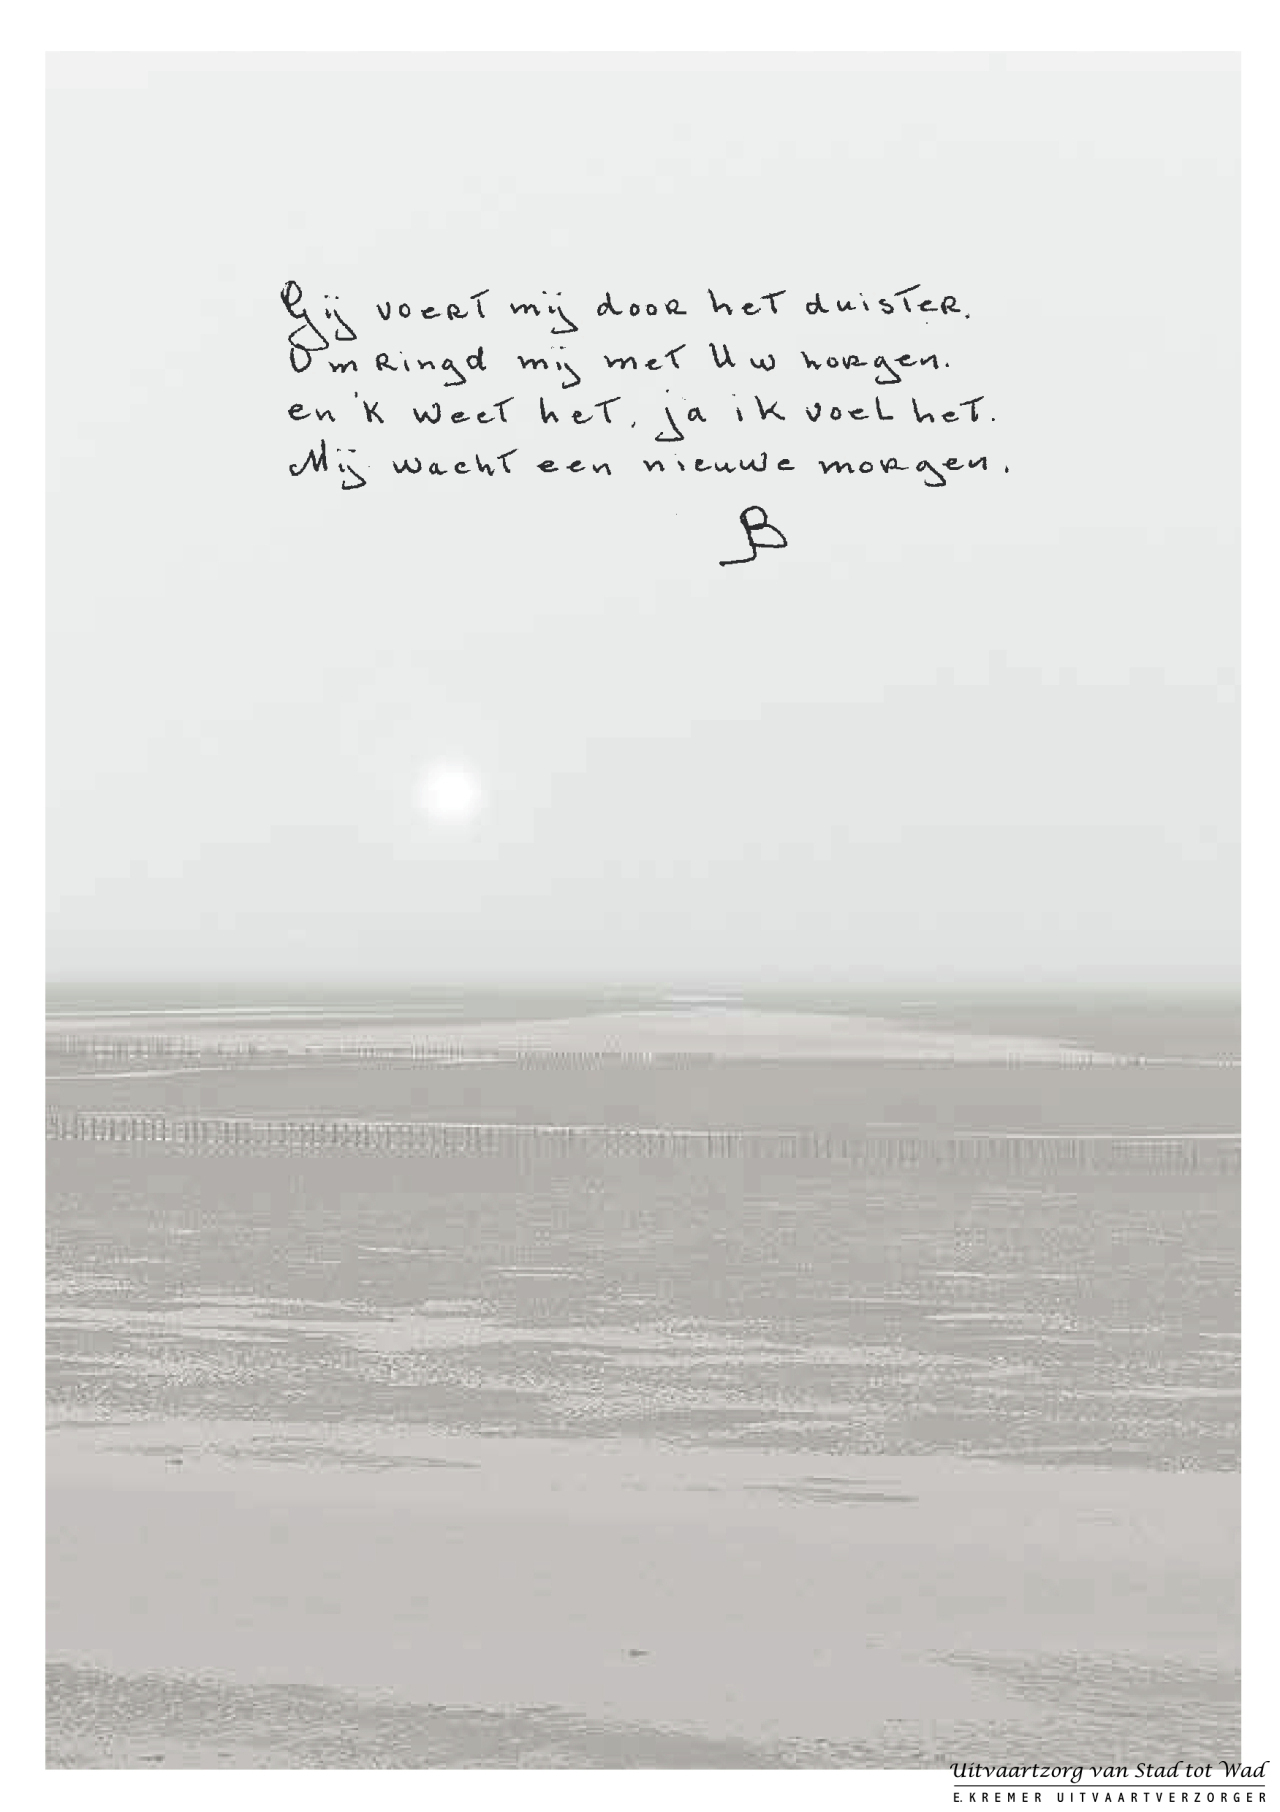 Gij voert mij door het duister.
Omringd mij met Uw horgen.
en 'k weet het, ja ik voel het.
Mij wacht een nieuwe morgen.
B
Uitvaartzorg van Stad tot Wad
E. KREMER UITVAARTVERZORGER